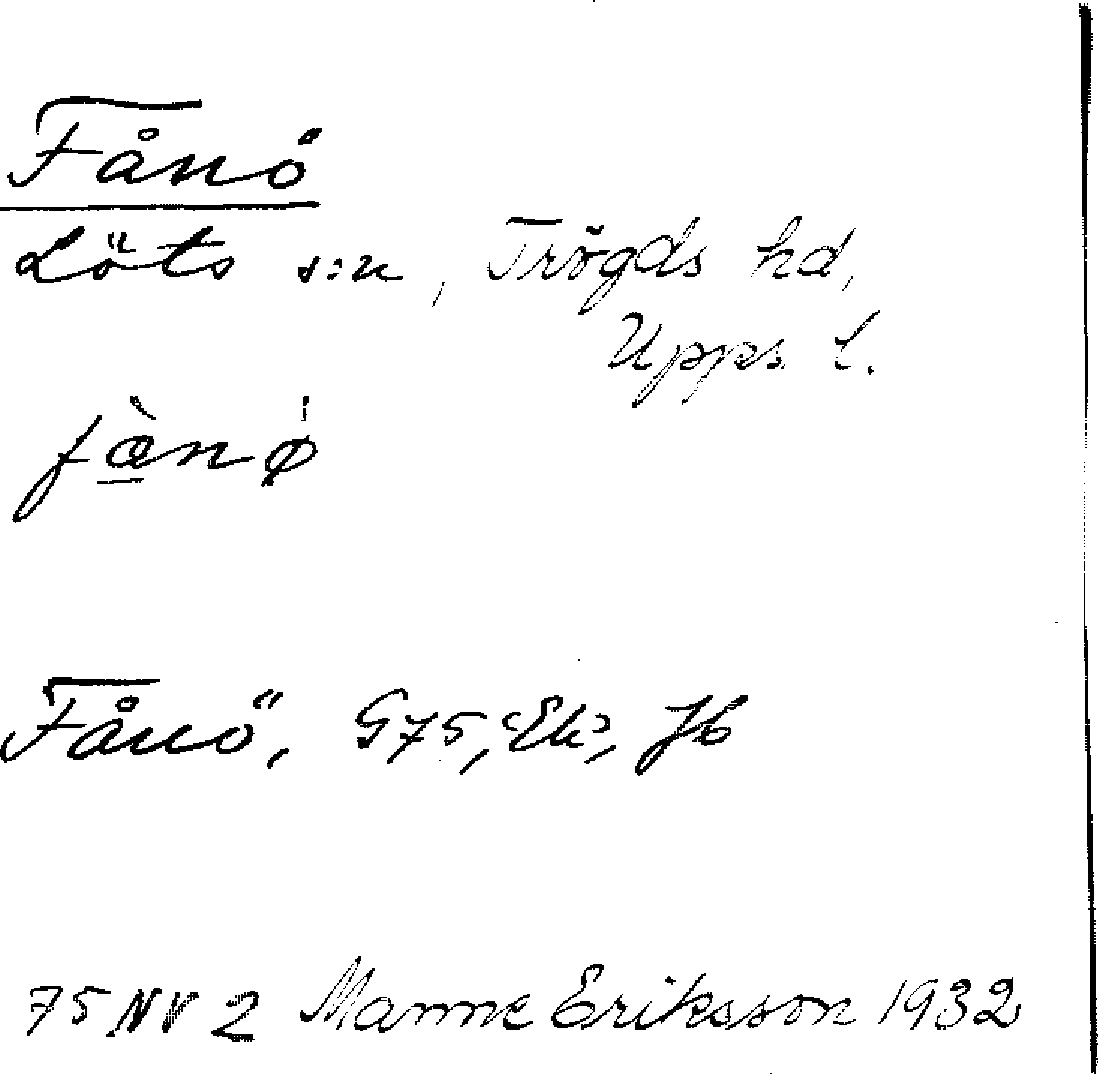 Fånö
Löts s:n, Trögds hd,
Upps. l.
fànø̍
Fånö, G75, "Ek", Jb
75 NV 2 Manne Eriksson 1932